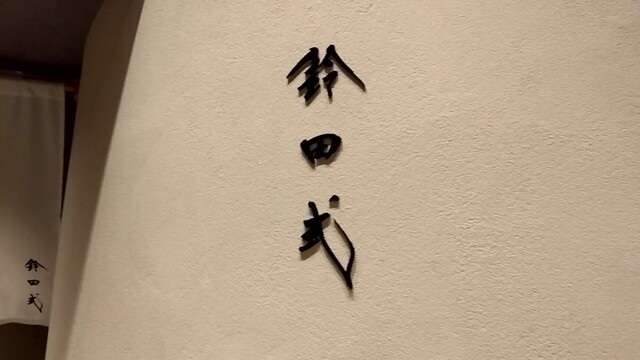 鈴田式
鈴田式